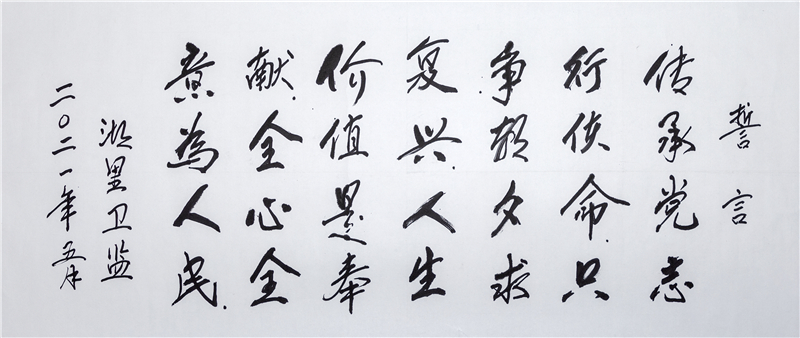 誓言
传承党志
行使命只
争朝夕求
复兴人生
价值是奉
献全心全
意為人民
湖里卫监
二〇二一年五月